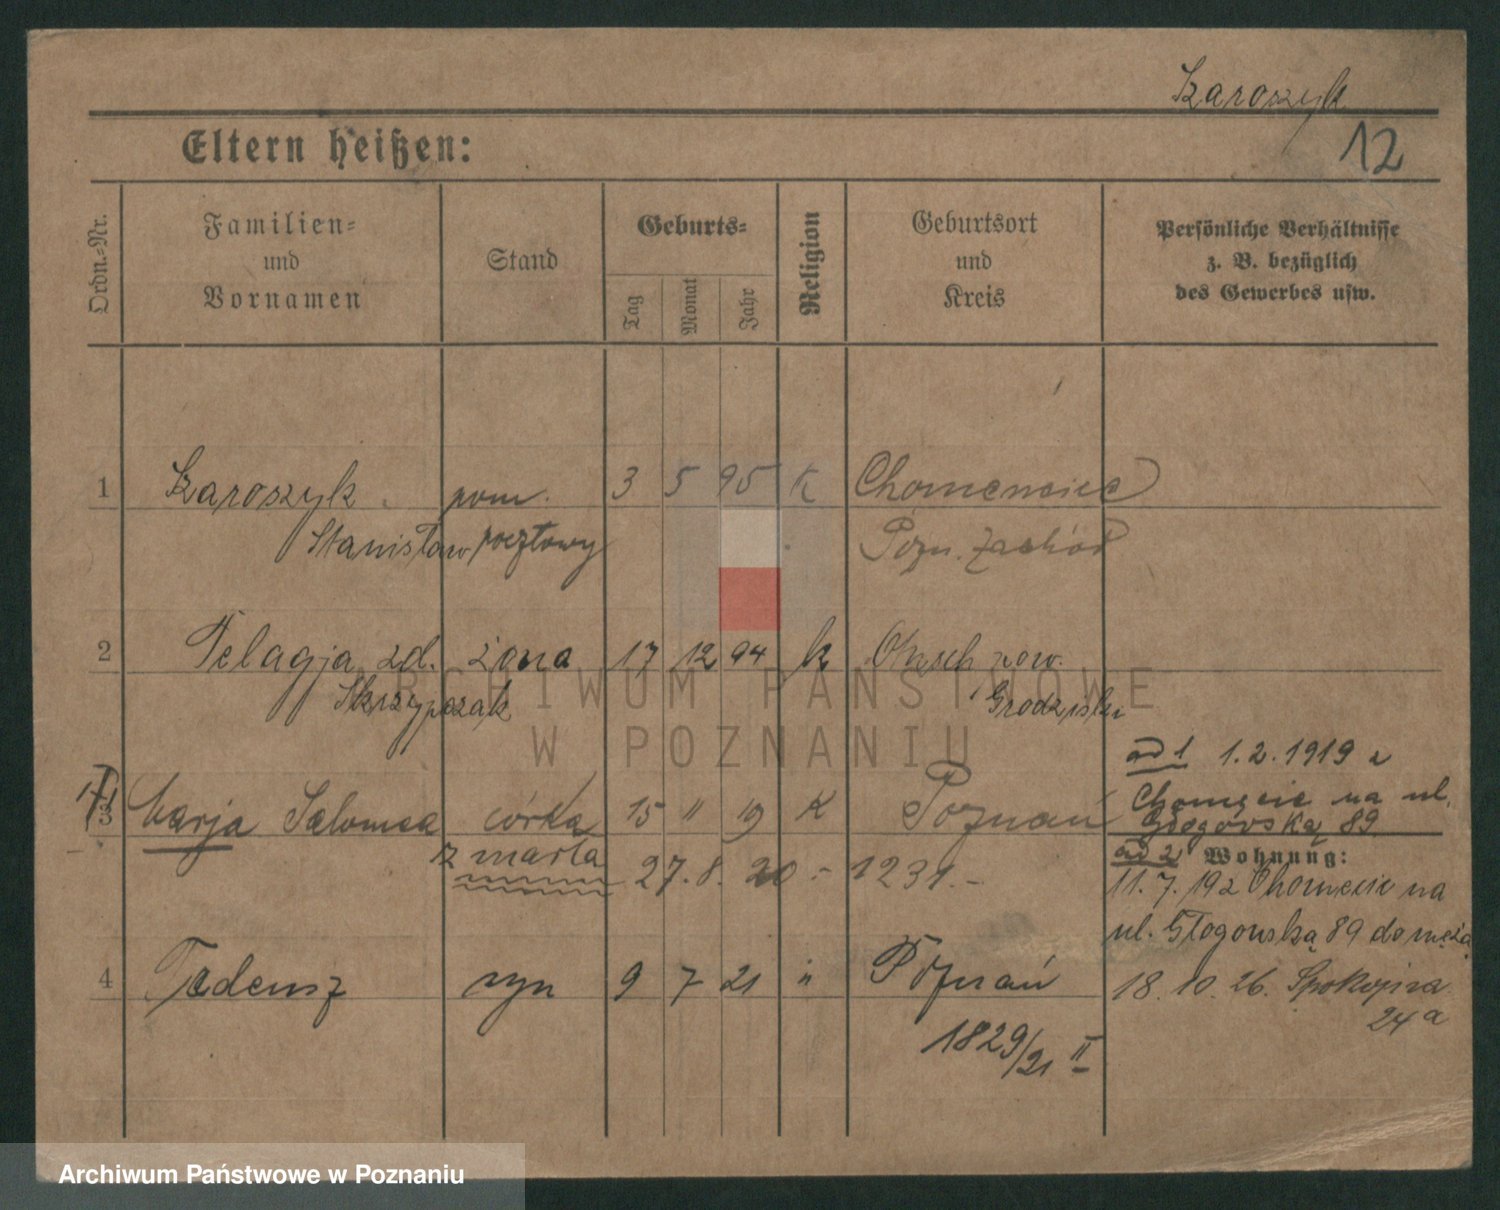 Szaroszyk
12
Eltern heißen:
Ordn.-Nr.
Familien- und Vornamen
Stand
Geburts-
Tag
Monat
Jahr
Religion
Geburtsort und Kreis
Persönliche Verhältnisse z. B. bezüglich des Gewerbes usw.
1 Szaroszyk pom. 3 5 95 K Chomencice
Stanisław pocztowy Pozn. Zachód
2 Pelagja zd. żona 17 12 94 k pow.
Skrzypczak Grodzisk
ad 1 1.2.1919 z
3 Marja Salomea córka 15 11 19 K Poznań
Chomęcic na ul.
Głogowską 89
zmarła 27.8.20 - 1231.-
ad 2 Wohnung:
11.7.192 Chomęcic na
ul. Głogowską 89 do męża
4 Tadeusz syn 9 7 21 " Poznań
18.10.26. Spokojna
24a
1829/21 II
ARCHIWUM PAŃSTWOWE
W POZNANIU
Archiwum Państwowe w Poznaniu